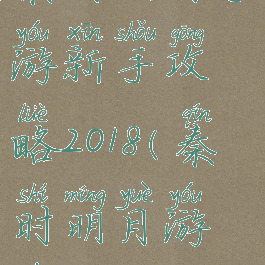 yóu xīn shǒu gōng
游新手攻
lüè qín
略2018(秦
shí míng yuè yóu
时明月游